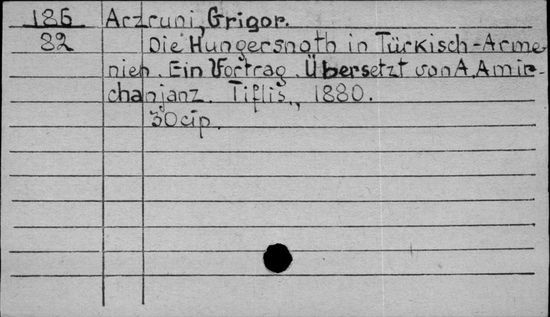 186 Arzruni, Grigor.
82 Die Hungersnoth in Türkisch-Arme
nien. Ein Vortrag. Übersetzt von A. Amir-
chanjanz. Tiflis, 1880.
30 стр.